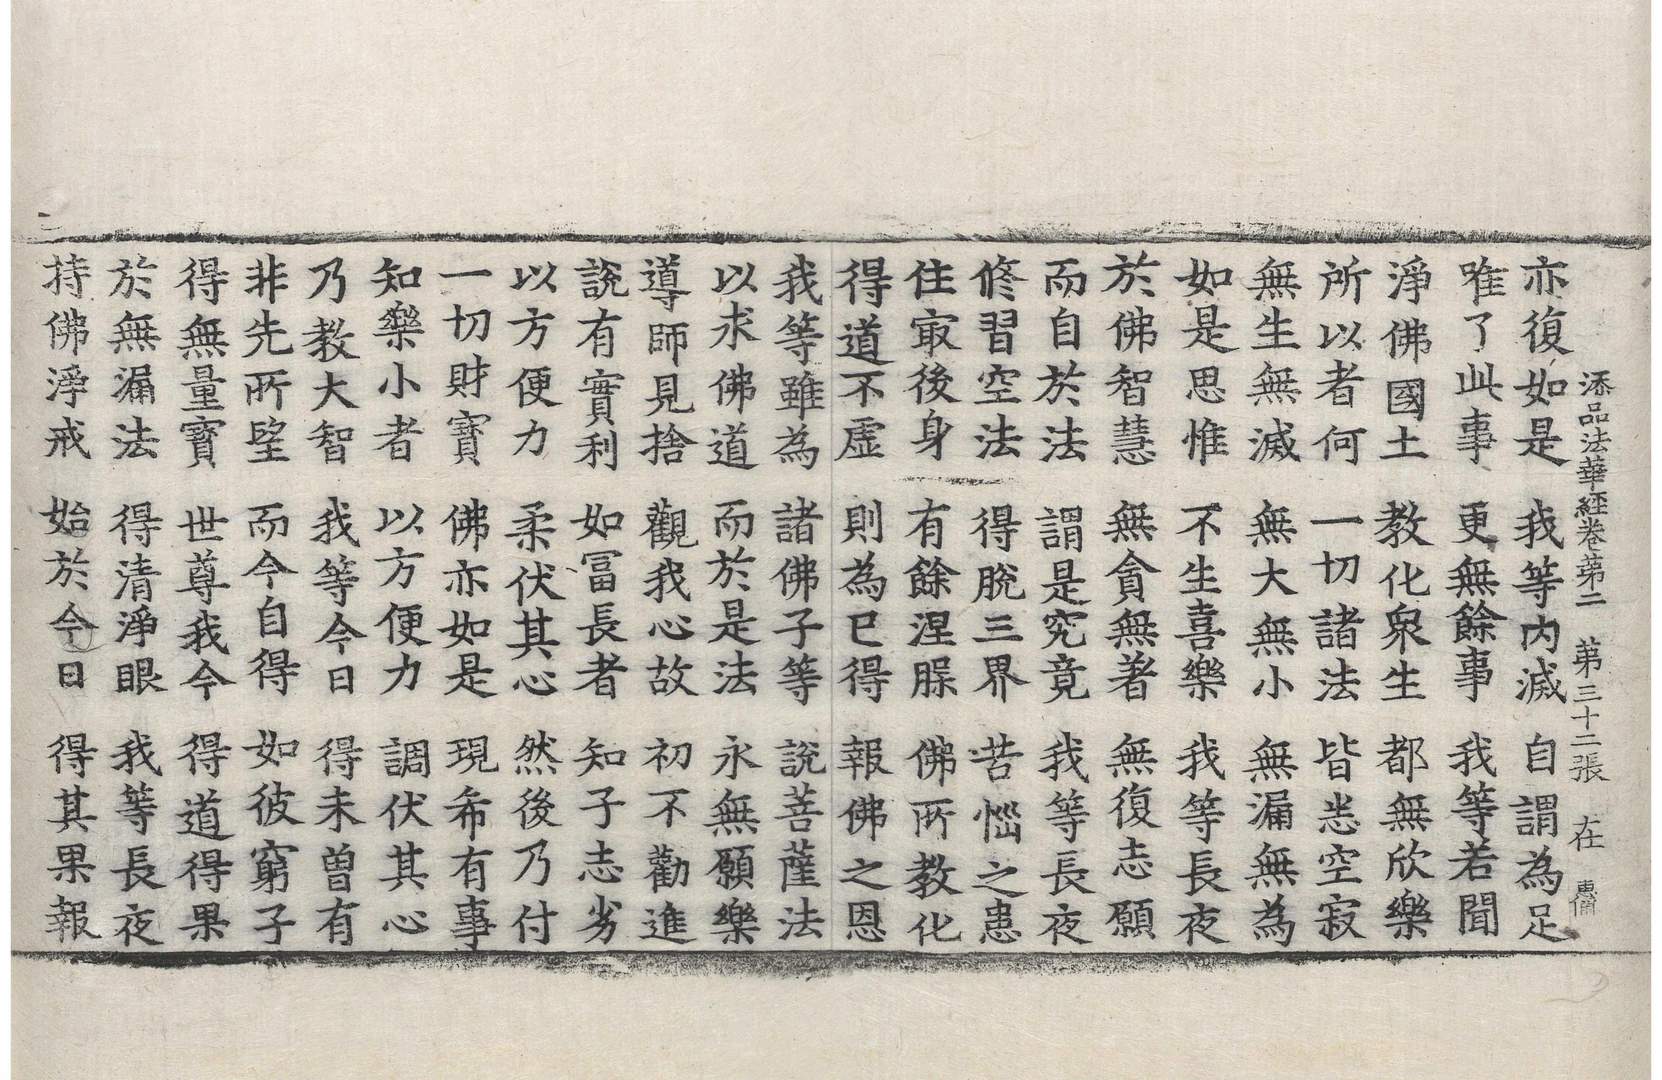 添品法華經卷第二 第三十二張 在 惠備
亦復如是 我等內滅 自謂為足
唯了此事 更無餘事 我等若聞
淨佛國土 教化衆生 都無欣樂
所以者何 一切諸法 皆悉空寂
無生無滅 無大無小 無漏無為
如是思惟 不生喜樂 我等長夜
於佛智慧 無貪無著 無復志願
而自於法 謂是究竟 我等長夜
修習空法 得脫三界 苦惱之患
住㝡後身 有餘涅槃 佛所教化
得道不虛 則為已得 報佛之恩
我等雖為 諸佛子等 說菩薩法
以求佛道 而於是法 永無願樂
導師見捨 觀我心故 初不勸進
說有實利 如冨長者 知子志劣
以方便力 柔伏其心 然後乃付
一切財寶 佛亦如是 現希有事
知樂小者 以方便力 調伏其心
乃教大智 我等今日 得未曾有
非先所望 而今自得 如彼窮子
得無量寶 世尊我今 得道得果
於無漏法 得清淨眼 我等長夜
持佛淨戒 始於今日 得其果報